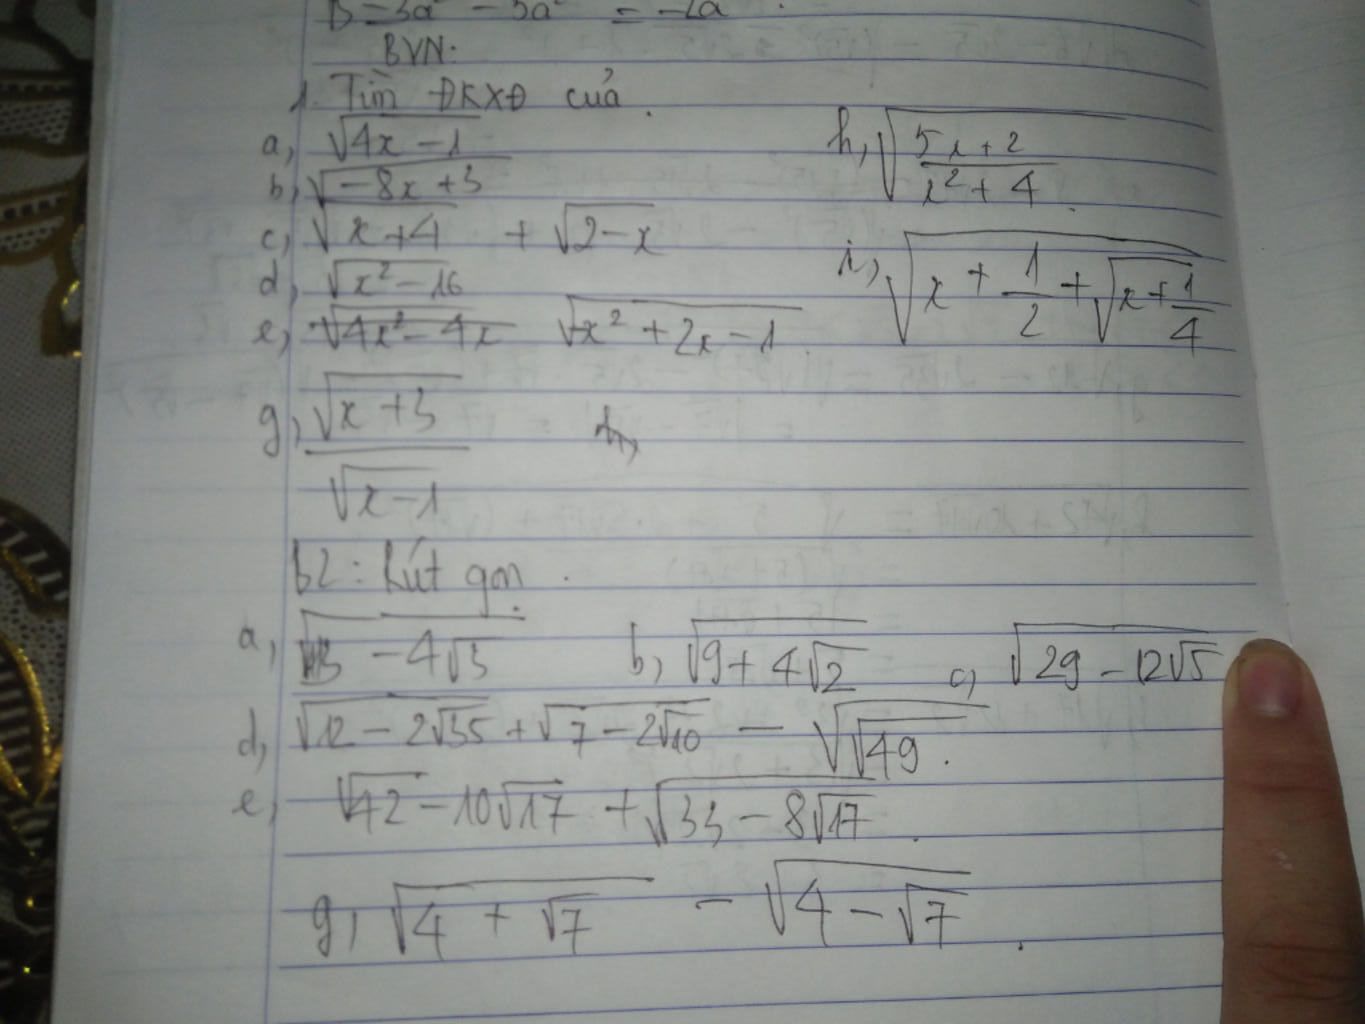 B = 3a² - 5a² = -2a
BVN:
1. Tìm ĐKXĐ của.
a, √(4x - 1)
b, √(-8x + 3)
c, √(x + 4) + √(2 - x)
d, √(x² - 16)
e, √(4x² - 4x) √(x² + 2x - 1)
g, √(x + 3) / √(x - 1)
h, √((5x + 2)/(x² + 4))
i, √(x + 1/2 + √(x + 1/4))
b2: Rút gọn.
a, √( - 4√3) b, √(9 + 4√2) c, √(29 - 12√5)
d, √(12 - 2√35) + √(7 - 2√10) - √(√49).
e, √42 - 10√17 + √(33 - 8√17).
g, √(4 + √7) - √(4 - √7).